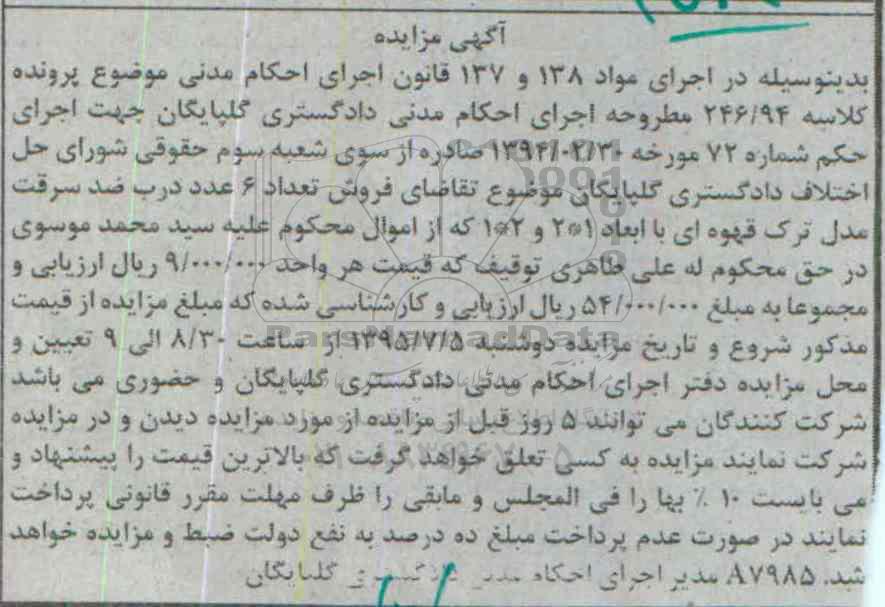 آگهی مزایده
بدینوسیله در اجرای مواد ۱۳۸ و ۱۳۷ قانون اجرای احکام مدنی موضوع پرونده
کلاسه ۲۴۶/۹۴ مطروحه اجرای احکام مدنی دادگستری گلپایگان جهت اجرای
حکم شماره ۷۲ مورخه ۱۳۹۴/۰۲/۳۰ صادره از سوی شعبه سوم حقوقی شورای حل
اختلاف دادگستری گلپایگان موضوع تقاضای فروش تعداد ۶ عدد درب ضد سرقت
مدل ترک قهوه ای با ابعاد ۱*۲ و ۲*۱ که از اموال محکوم علیه سید محمد موسوی
در حق محکوم له علی طاهری توقیف که قیمت هر واحد ۹/۰۰۰/۰۰۰ ریال ارزیابی و
مجموعا به مبلغ ۵۴/۰۰۰/۰۰۰ ریال ارزیابی و کارشناسی شده که مبلغ مزایده از قیمت
مذکور شروع و تاریخ مزایده دوشنبه ۱۳۹۵/۷/۵ از ساعت ۸/۳۰ الی ۹ تعیین و
محل مزایده دفتر اجرای احکام مدنی دادگستری گلپایگان و حضوری می باشد
شرکت کنندگان می توانند ۵ روز قبل از مزایده از مورد مزایده دیدن و در مزایده
شرکت نمایند مزایده به کسی تعلق خواهد گرفت که بالاترین قیمت را پیشنهاد و
می بایست ۱۰ ٪ بها را فی المجلس و مابقی را ظرف مهلت مقرر قانونی پرداخت
نمایند در صورت عدم پرداخت مبلغ ده درصد به نفع دولت ضبط و مزایده خواهد
شد. A۷۹۸۵ مدیر اجرای احکام مدنی دادگستری گلپایگان
ParsNamadData